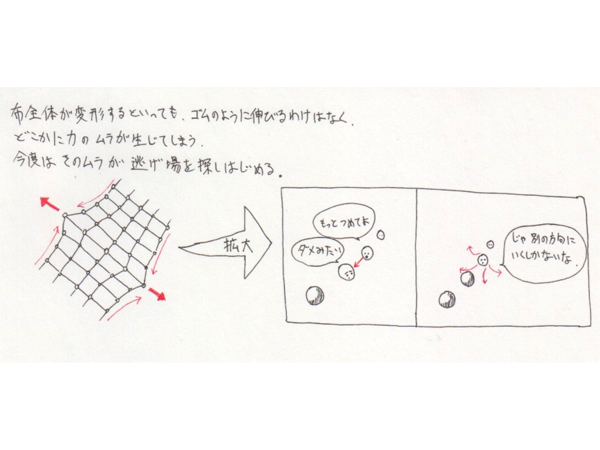 布全体が変形するといっても、ゴムのように伸びるわけはなく、
どこかに力のムラが生じてしまう。
今度はそのムラが逃げ場を探しはじめる。
拡大
もっとつめてよ
ダメみたい
じゃ 別の方向に
いくしかないな。